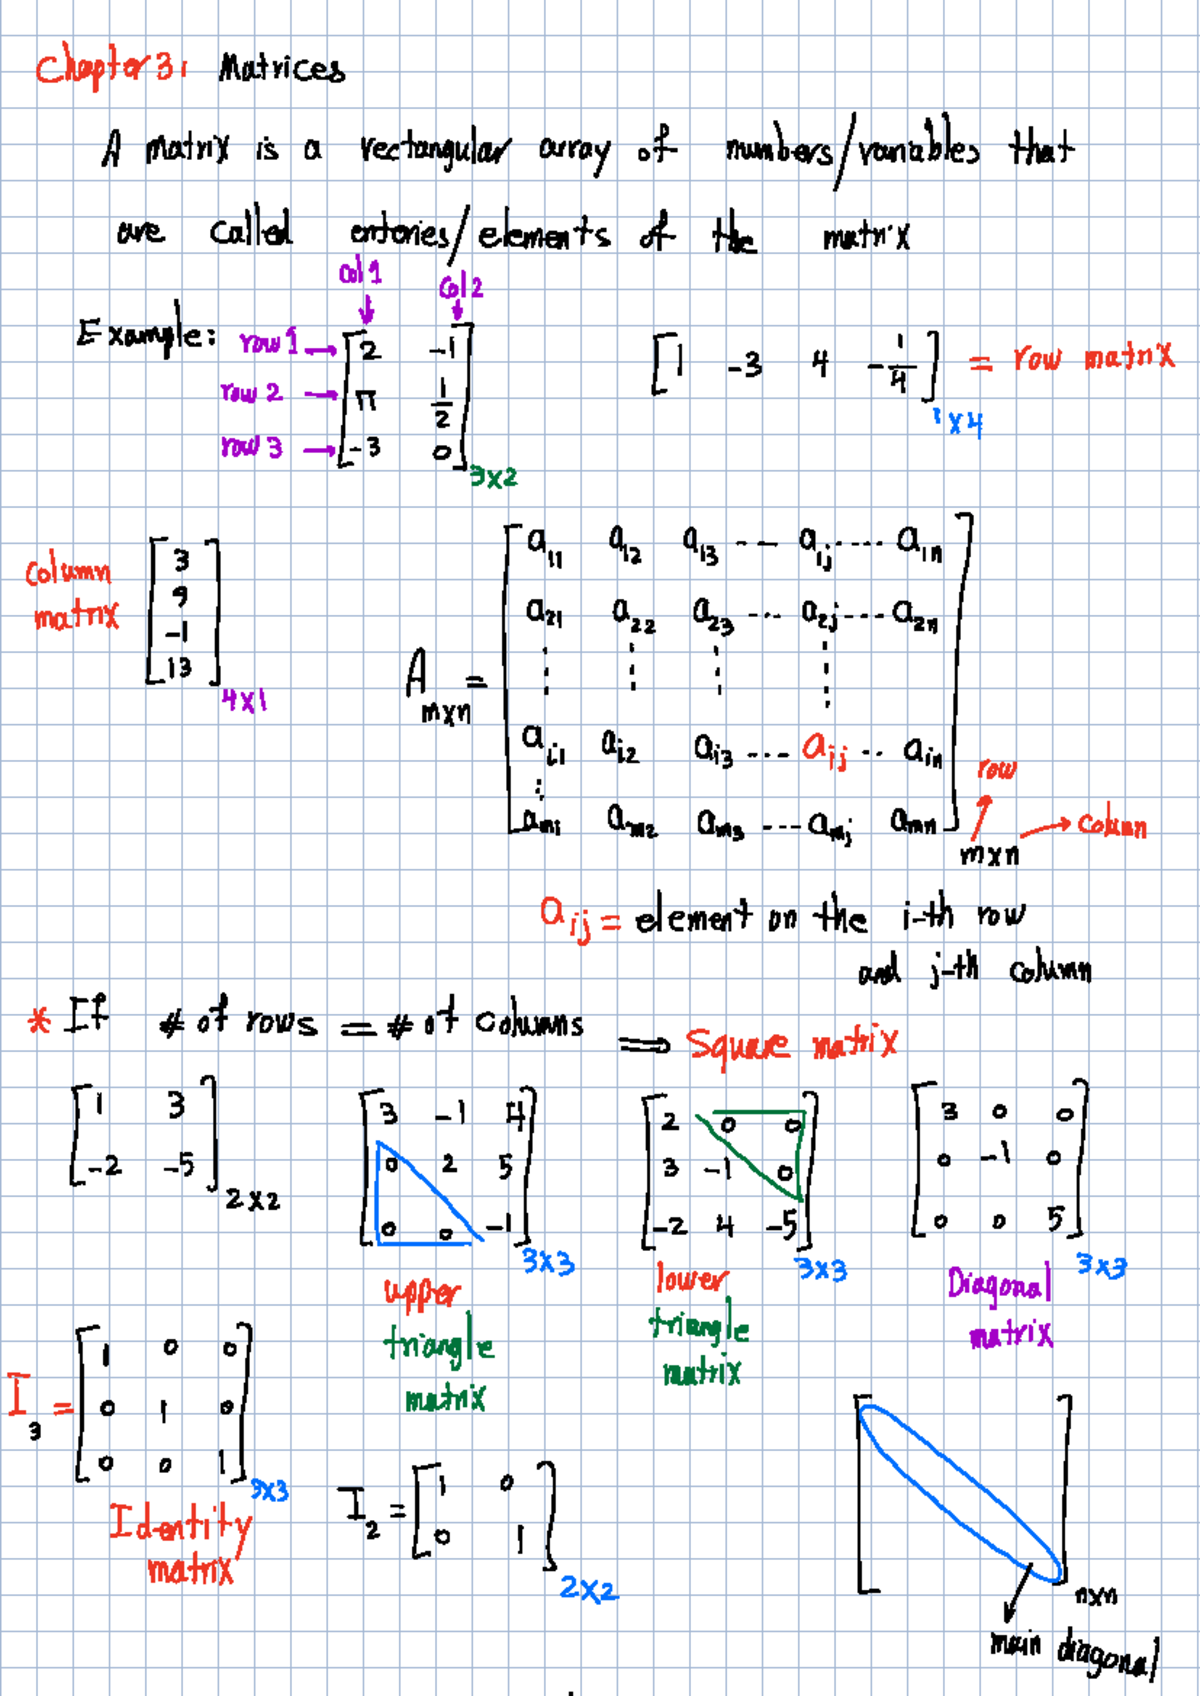 Chapter 3: Matrices
A matrix is a rectangular array of numbers/variables that
are called entories/elements of the matrix
col 1 col 2
Example: row 1 → [2 -1
row 2 → π 1/2
row 3 → -3 0] 3x2
[1 -3 4 -1/4] 1x4 = row matrix
column matrix
[3
9
-1
13] 4x1
A mxn =
[a11 a12 a13 --- a1j ---- a1n
a21 a22 a23 --- a2j --- a2n
⋮ ⋮ ⋮ ⋮
ai1 ai2 ai3 --- aij -- ain
⋮
am1 am2 am3 --- amj amn] mxn
row
column
aij = element on the i-th row
and j-th column
* If # of rows = # of columns ⟹ Square matrix
[1 3
-2 -5] 2x2
[3 -1 4
0 2 5
0 0 -1] 3x3
upper
triangle
matrix
[2 0 0
3 -1 0
-2 4 -5] 3x3
lower
triangle
matrix
[3 0 0
0 -1 0
0 0 5] 3x3
Diagonal
matrix
I3 = [1 0 0
0 1 0
0 0 1] 3x3
Identity
matrix
I2 = [1 0
0 1] 2x2
[ ] nxn
main diagonal